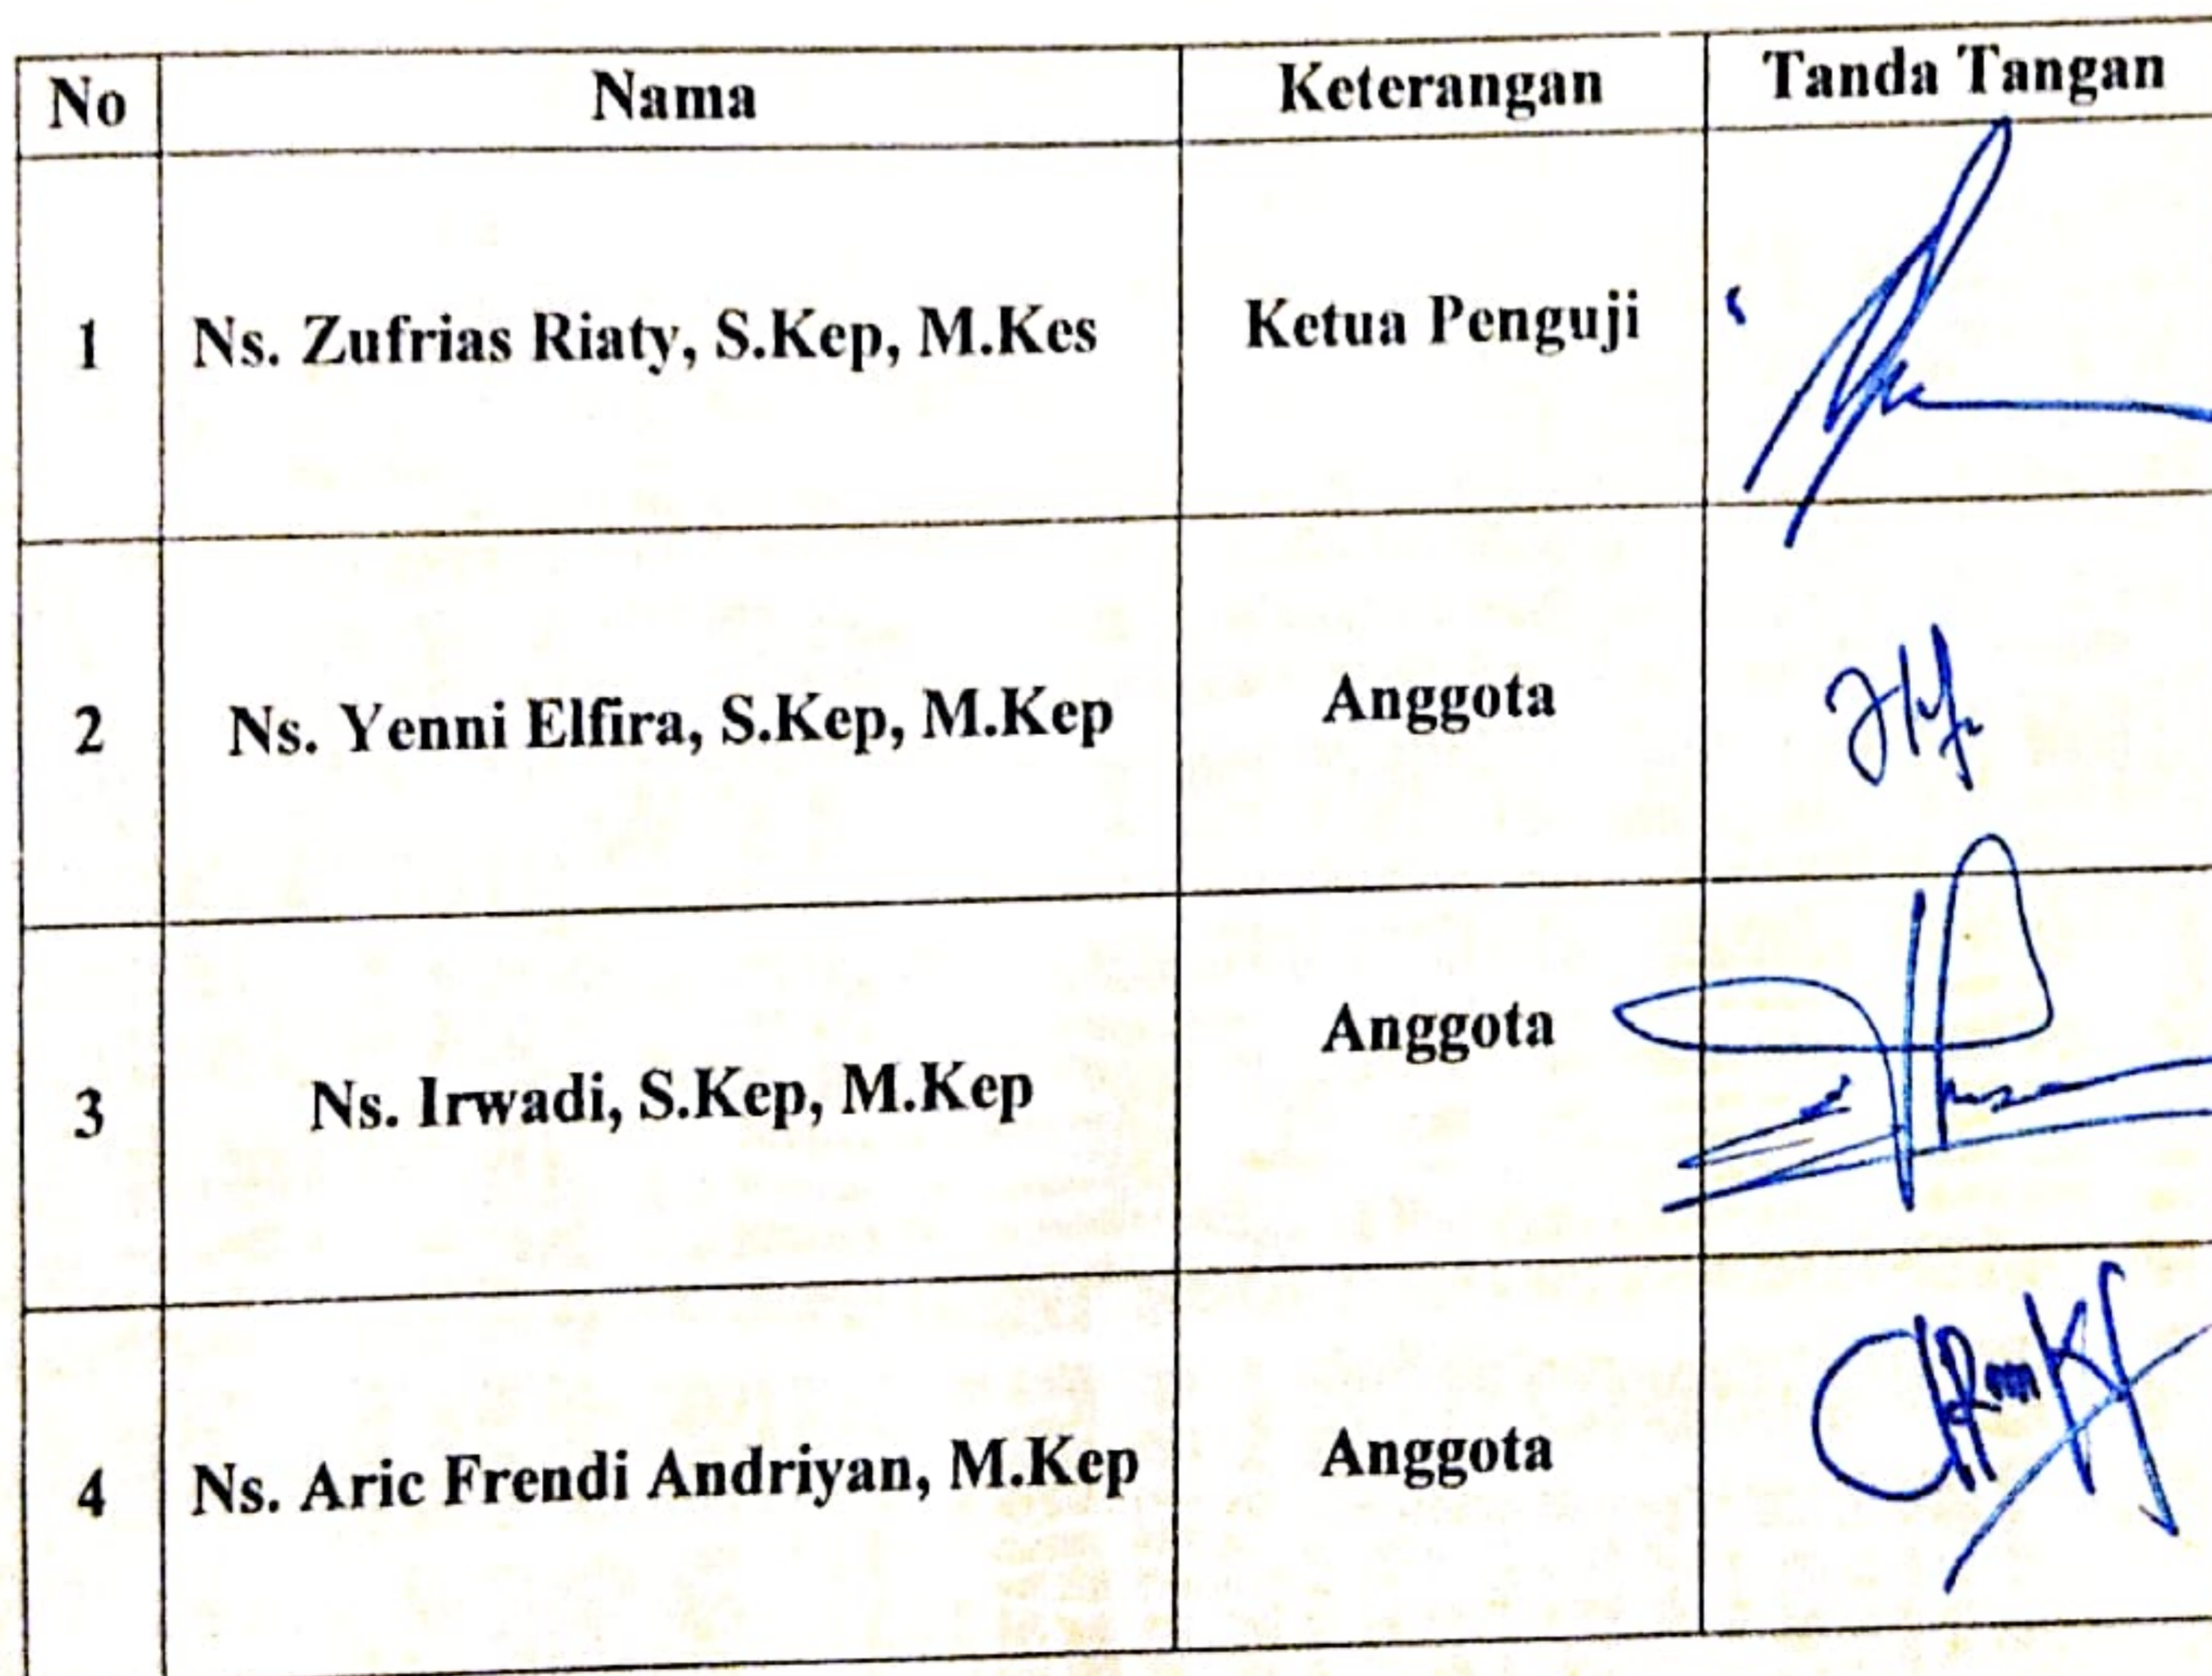 No Nama Keterangan Tanda Tangan
1 Ns. Zufrias Riaty, S.Kep, M.Kes Ketua Penguji
2 Ns. Yenni Elfira, S.Kep, M.Kep Anggota
3 Ns. Irwadi, S.Kep, M.Kep Anggota
4 Ns. Aric Frendi Andriyan, M.Kep Anggota